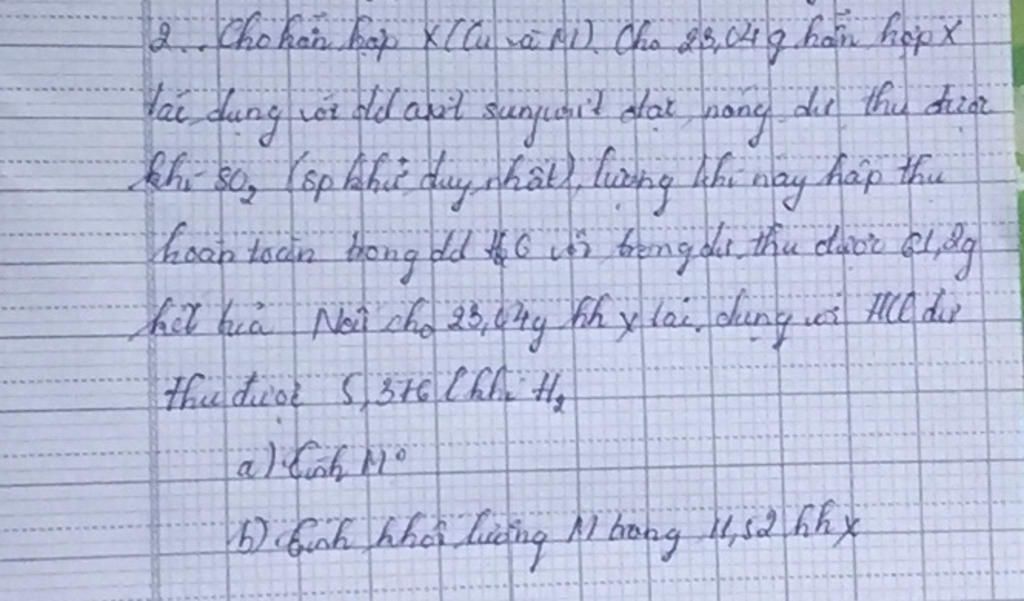 2. Cho hỗn hợp X (Cu và M). Cho 23,04g hỗn hợp X
tác dụng với dd axit sunfuric đặc nóng dư thu được
khí SO₂ (sp khử duy nhất), lượng khí này hấp thu
hoàn toàn trong dd trong dư thu được 61,2g
kết tủa Nếu cho 23,04g hh X tác dụng với HCl dư
thu được 5,376 l khí H₂
a) tính M
b) tính khối lượng M trong 11,52 hh X